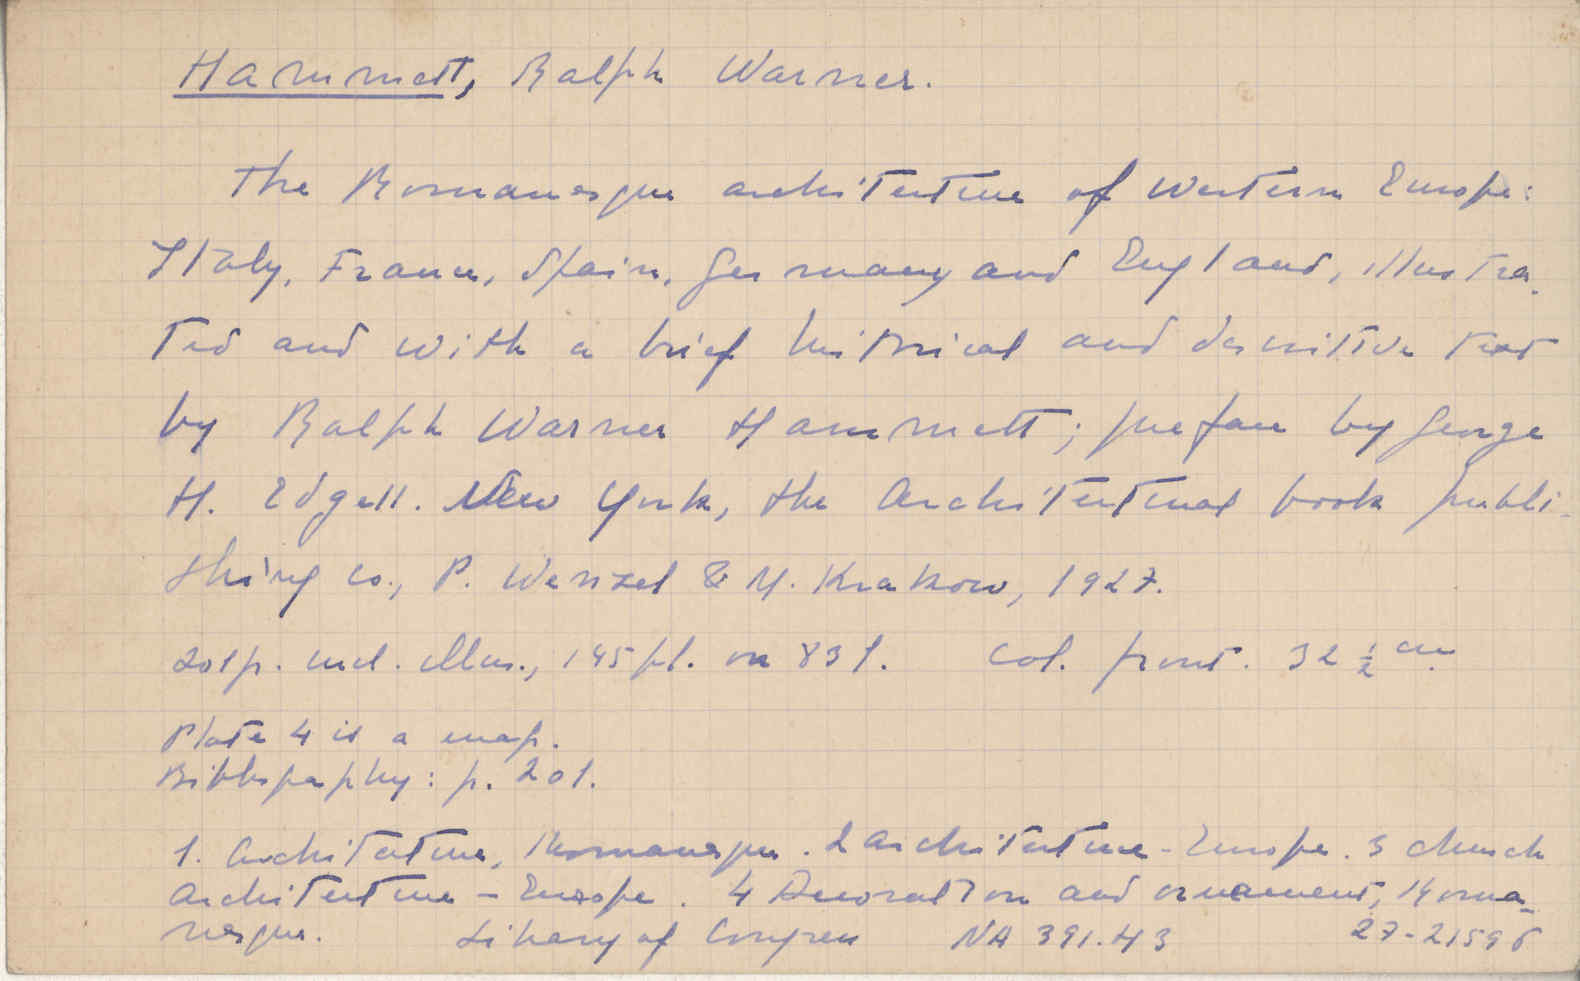 Hammett, Ralph Warner.
The Romanesque architecture of Western Europe:
Italy, France, Spain, Germany and England, illustra-
ted and with a brief historical and descritive text
by Ralph Warner Hammett; preface by George
H. Edgell. New York, the Architectural book publi-
shing co., P. Wenzel & M. Krakow, 1927.
201p. incl. illus., 145 pl. on 83 l. col. front. 32 ½ cm.
Plate 4 is a map.
Bibliography: p. 201.
1. Architecture, Romanesque. 2 Architecture - Europe. 3 Church
architecture - Europe. 4 Decoration and ornament, Roma-
nesque. Library of Congress NA 391.H3